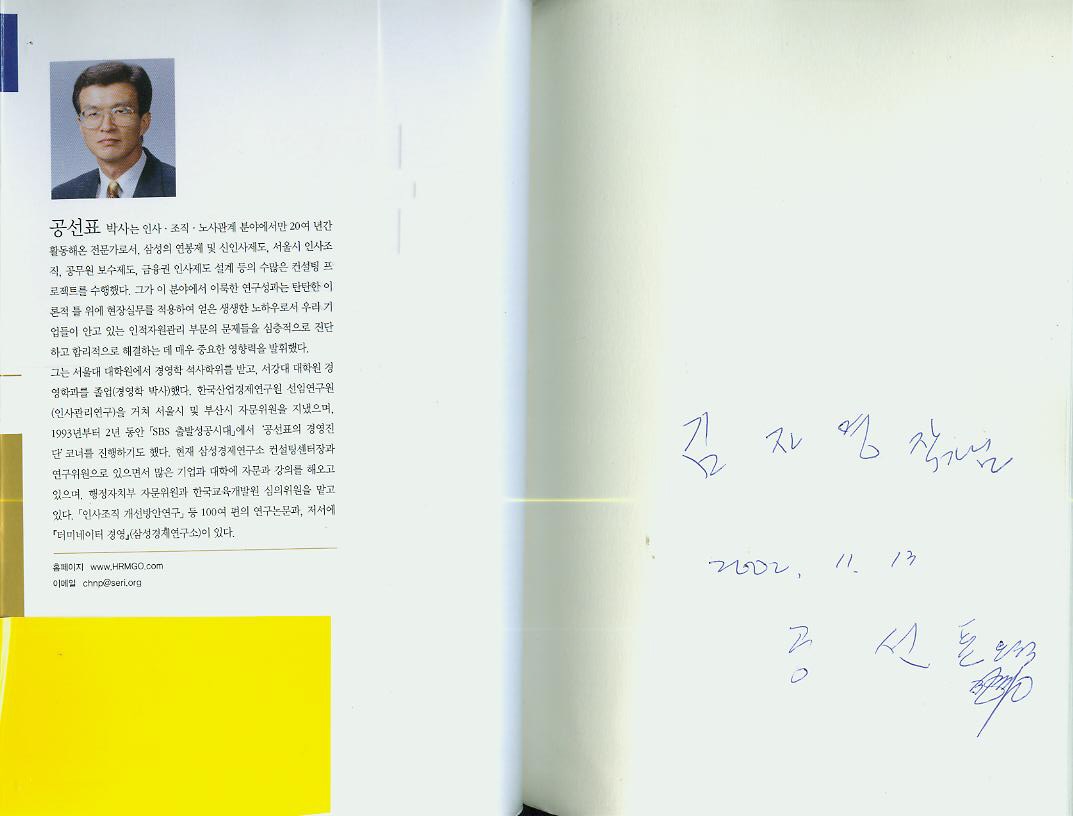 공선표 박사는 인사·조직·노사관계 분야에서만 20여 년간
활동해온 전문가로서, 삼성의 연봉제 및 신인사제도, 서울시 인사조
직, 공무원 보수제도, 금융권 인사제도 설계 등의 수많은 컨설팅 프
로젝트를 수행했다. 그가 이 분야에서 이룩한 연구성과는 탄탄한 이
론적 틀 위에 현장실무를 적용하여 얻은 생생한 노하우로서 우리 기
업들이 안고 있는 인적자원관리 부문의 문제들을 심층적으로 진단
하고 합리적으로 해결하는 데 매우 중요한 영향력을 발휘했다.
그는 서울대 대학원에서 경영학 석사학위를 받고, 서강대 대학원 경
영학과를 졸업(경영학 박사)했다. 한국산업경제연구원 선임연구원
(인사관리연구)을 거쳐 서울시 및 부산시 자문위원을 지냈으며,
1993년부터 2년 동안 「SBS 출발성공시대」에서 '공선표의 경영진
단' 코너를 진행하기도 했다. 현재 삼성경제연구소 컨설팅센터장과
연구위원으로 있으면서 많은 기업과 대학에 자문과 강의를 해오고
있으며, 행정자치부 자문위원과 한국교육개발원 심의위원을 맡고
있다. 「인사조직 개선방안연구」 등 100여 편의 연구논문과, 저서에
『터미네이터 경영』(삼성경제연구소)이 있다.
홈페이지 www.HRMGO.com
이메일 chnp@seri.org
김 자영 작가님
2002. 11. 13
공 선 표